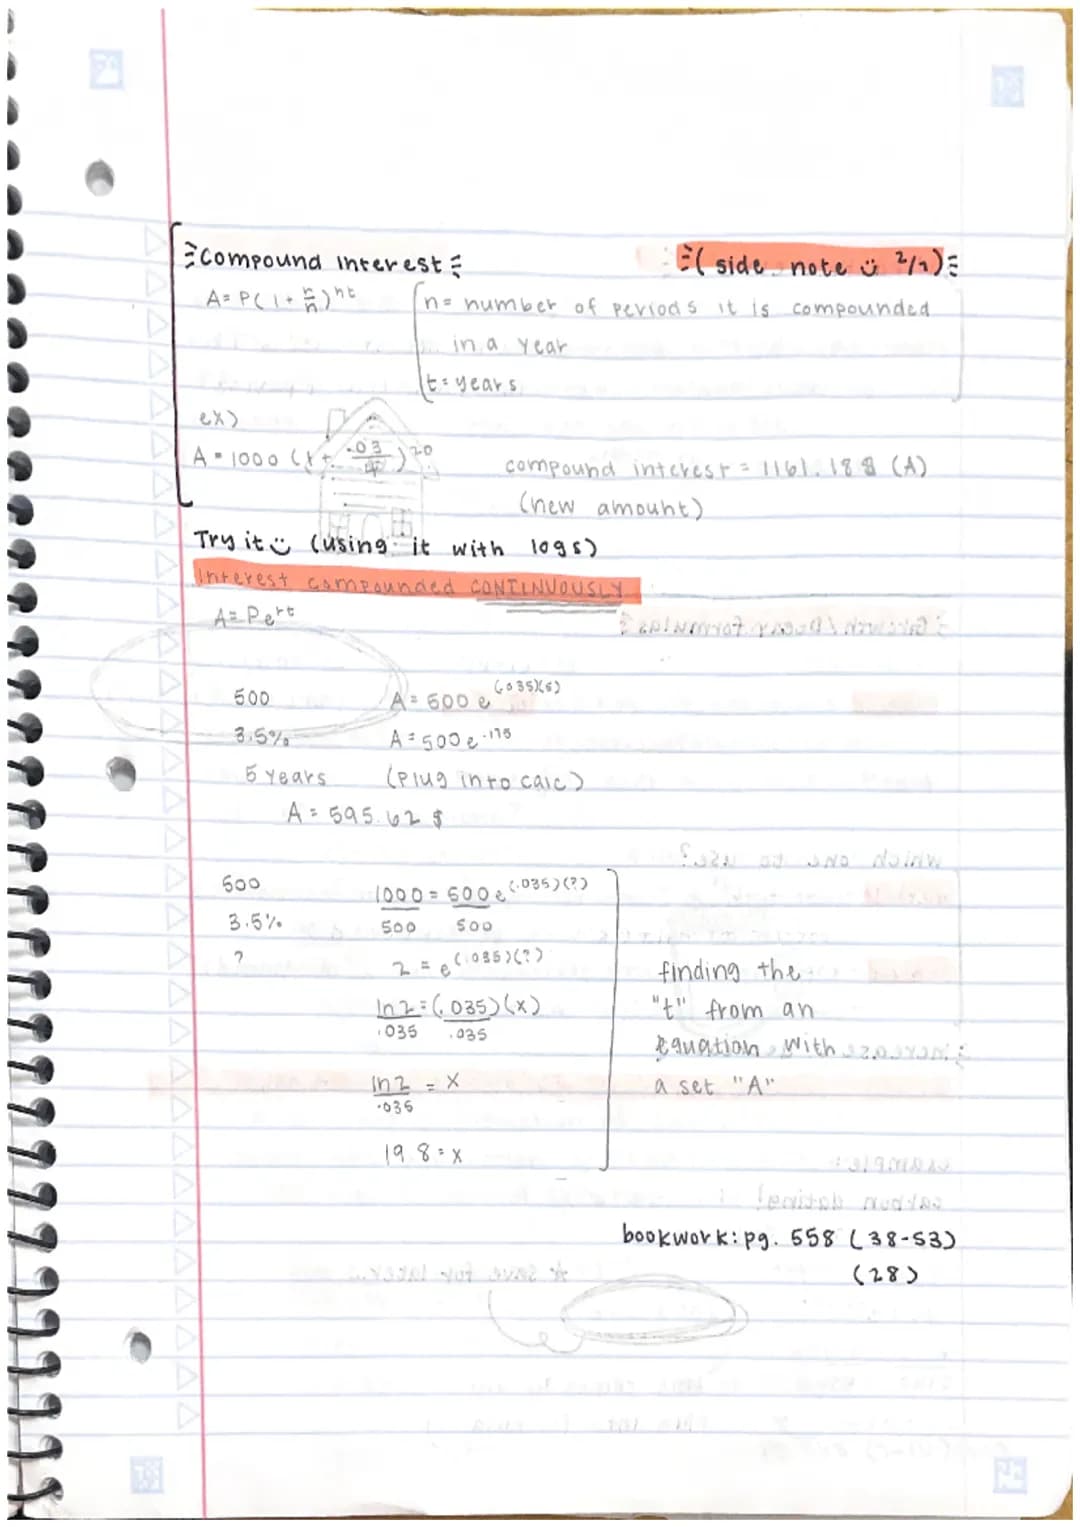 Compound Interest
( side note ü 2/1)
A= P(1+ r/n)^nt
n= number of periods it is compounded
in a year
t= years
ex)
A= 1000 (1+ .03/4)^20
compound interest = 1161.18$ (A)
(new amount)
Try it ü (using it with logs)
Interest compounded CONTINUOUSLY
A= Pe^rt
500 A= 500 e^(.035)(5)
3.5% A= 500 e^.175
5 years (plug into calc)
A= 595.62 $
500 1000 = 500 e^(.035)(?)
3.5% 500 500
? 2 = e^(.035)(?)
ln 2 = (.035)(x)
.035 .035
ln 2 = x
.035
19.8 = x
finding the
"t" from an
equation with
a set "A"
bookwork: pg. 558 (38-53)
(28)